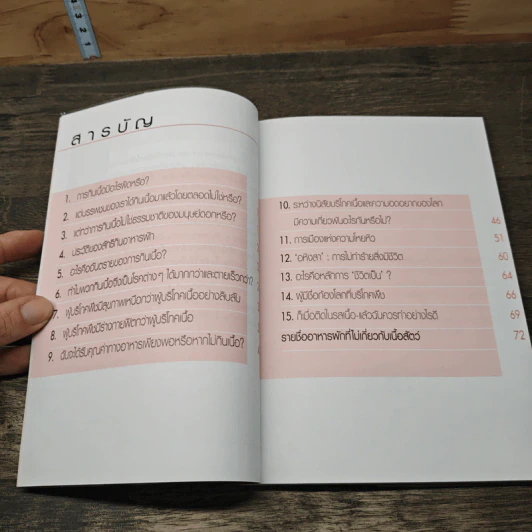 สารบัญ
1. การกินเนื้อมีอะไรผิดหรือ?
2. แต่บรรพชนของเราได้กินเนื้อมาแล้วโดยตลอดไม่ใช่หรือ?
3. แต่ว่าการกินเนื้อไม่ใช่ธรรมชาติของมนุษย์ดอกหรือ?
4. ประวัติของลัทธิกินอาหารผัก
5. อะไรคืออันตรายของการกินเนื้อ?
6. ทำไมพวกกินเนื้อจึงเป็นโรคต่างๆ ได้มากกว่าและตายเร็วกว่า?
7. ผู้บริโภคพืชมีสุขภาพเหนือกว่าผู้บริโภคเนื้ออย่างลิบลับ
8. ผู้บริโภคพืชมีร่างกายฟิตกว่าผู้บริโภคเนื้อ
9. ฉันจะได้รับคุณค่าทางอาหารเพียงพอหรือหากไม่กินเนื้อ?
10. ระหว่างนิสัยบริโภคเนื้อและความอดอยากของโลก
มีความเกี่ยวพันอะไรกันหรือไม่? 46
11. การเมืองแห่งความโหยหิว 51
12. 'อหิงสา' : การไม่ทำร้ายสิ่งมีชีวิต 60
13. อะไรคือหลักการ 'ชีวิตเป็น' ? 64
14. ผู้มีชื่อก้องโลกที่บริโภคพืช 66
15. ก็เมื่อติดในรสเนื้อ-แล้วฉันควรทำอย่างไรดี 69
รายชื่ออาหารผักที่ไม่เกี่ยวกับเนื้อสัตว์ 72